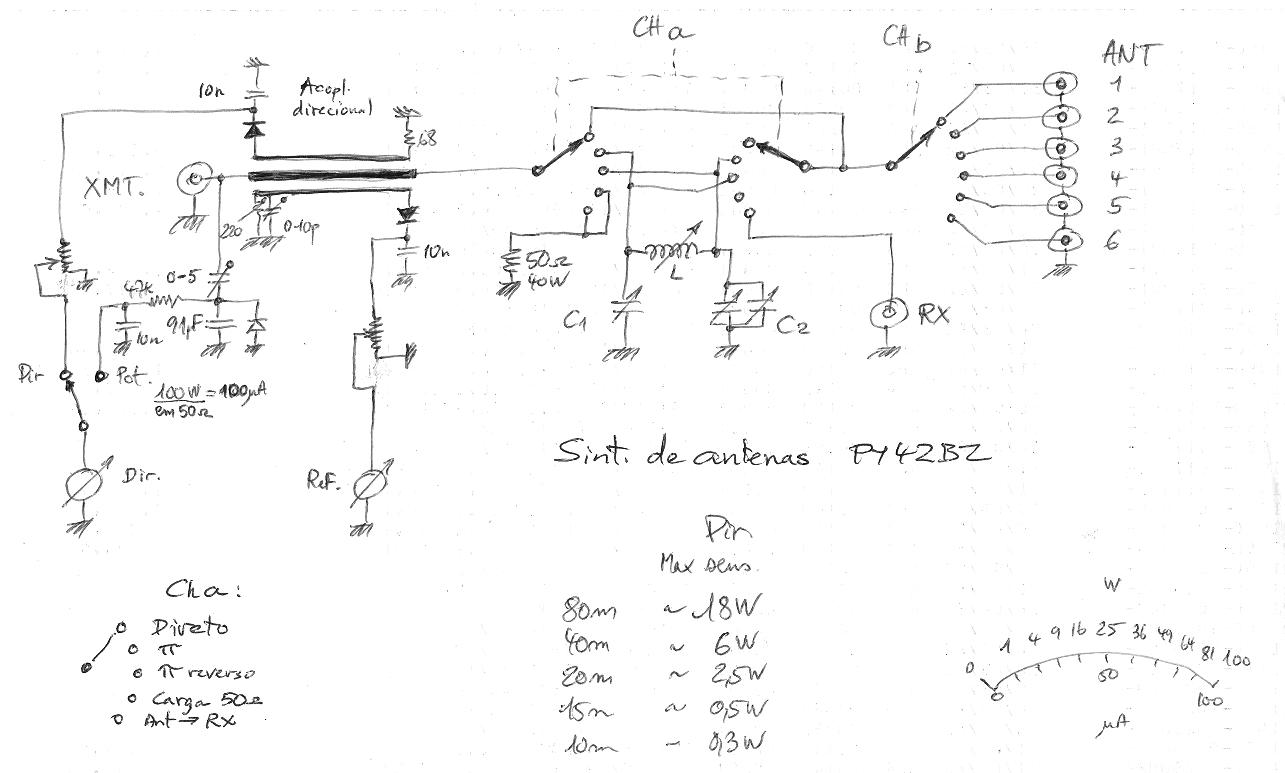 CHa
CHb
ANT
10n
Acopl.
direcional
68
1
2
3
4
5
6
XMT.
220
0-10p
10n
0-5
47k
91pF
10n
50Ω
40W
L
C1
C2
RX
Dir
Pot.
100W = 100µA
em 50Ω
Dir.
Ref.
Sint. de antenas PY4ZBZ
Dir
Max sens.
80m ~ 18W
40m ~ 6W
20m ~ 2,5W
15m ~ 0,5W
10m ~ 0,3W
Cha:
Direto
π
π reverso
Carga 50Ω
Ant → RX
W
0 1 4 9 16 25 36 49 64 81 100
0 50 100
µA